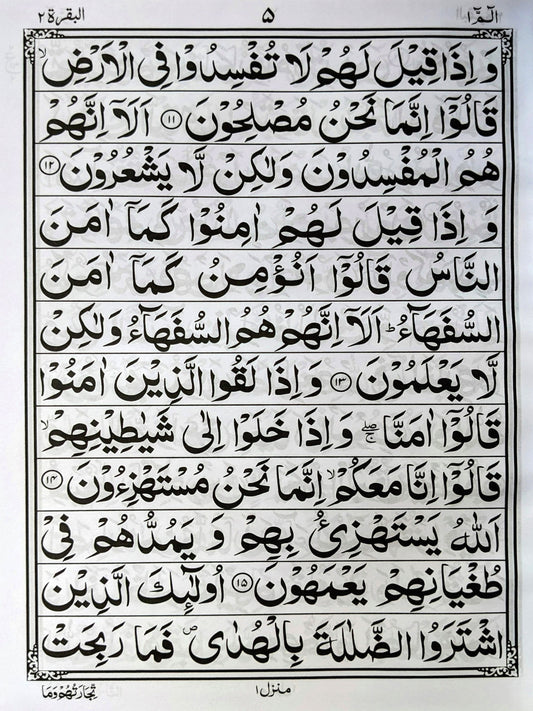 الٓمّٓ ١ ٥ البقرة ٢
وَ اِذَا قِيْلَ لَهُمْ لَا تُفْسِدُوْا فِى الْاَرْضِ ۙ
قَالُوْۤا اِنَّمَا نَحْنُ مُصْلِحُوْنَ ١١ اَلَاۤ اِنَّهُمْ
هُمُ الْمُفْسِدُوْنَ وَلٰكِنْ لَّا يَشْعُرُوْنَ ١٢
وَ اِذَا قِيْلَ لَهُمْ اٰمِنُوْا كَمَاۤ اٰمَنَ
النَّاسُ قَالُوْۤا اَنُؤْمِنُ كَمَاۤ اٰمَنَ
السُّفَهَآءُ ؕ اَلَاۤ اِنَّهُمْ هُمُ السُّفَهَآءُ وَلٰكِنْ
لَّا يَعْلَمُوْنَ ١٣ وَ اِذَا لَقُوا الَّذِيْنَ اٰمَنُوْا
قَالُوْۤا اٰمَنَّا ۖۚ وَ اِذَا خَلَوْا اِلٰى شَيٰطِيْنِهِمْ ۙ
قَالُوْۤا اِنَّا مَعَكُمْ ۙ اِنَّمَا نَحْنُ مُسْتَهْزِءُوْنَ ١٤
اَللّٰهُ يَسْتَهْزِئُ بِهِمْ وَ يَمُدُّهُمْ فِىْ
طُغْيَانِهِمْ يَعْمَهُوْنَ ١٥ اُولٰٓئِكَ الَّذِيْنَ
اشْتَرَوُا الضَّلٰلَةَ بِالْهُدٰى ۪ فَمَا رَبِحَتْ
تِّجَارَتُهُمْ وَمَا منزل ١